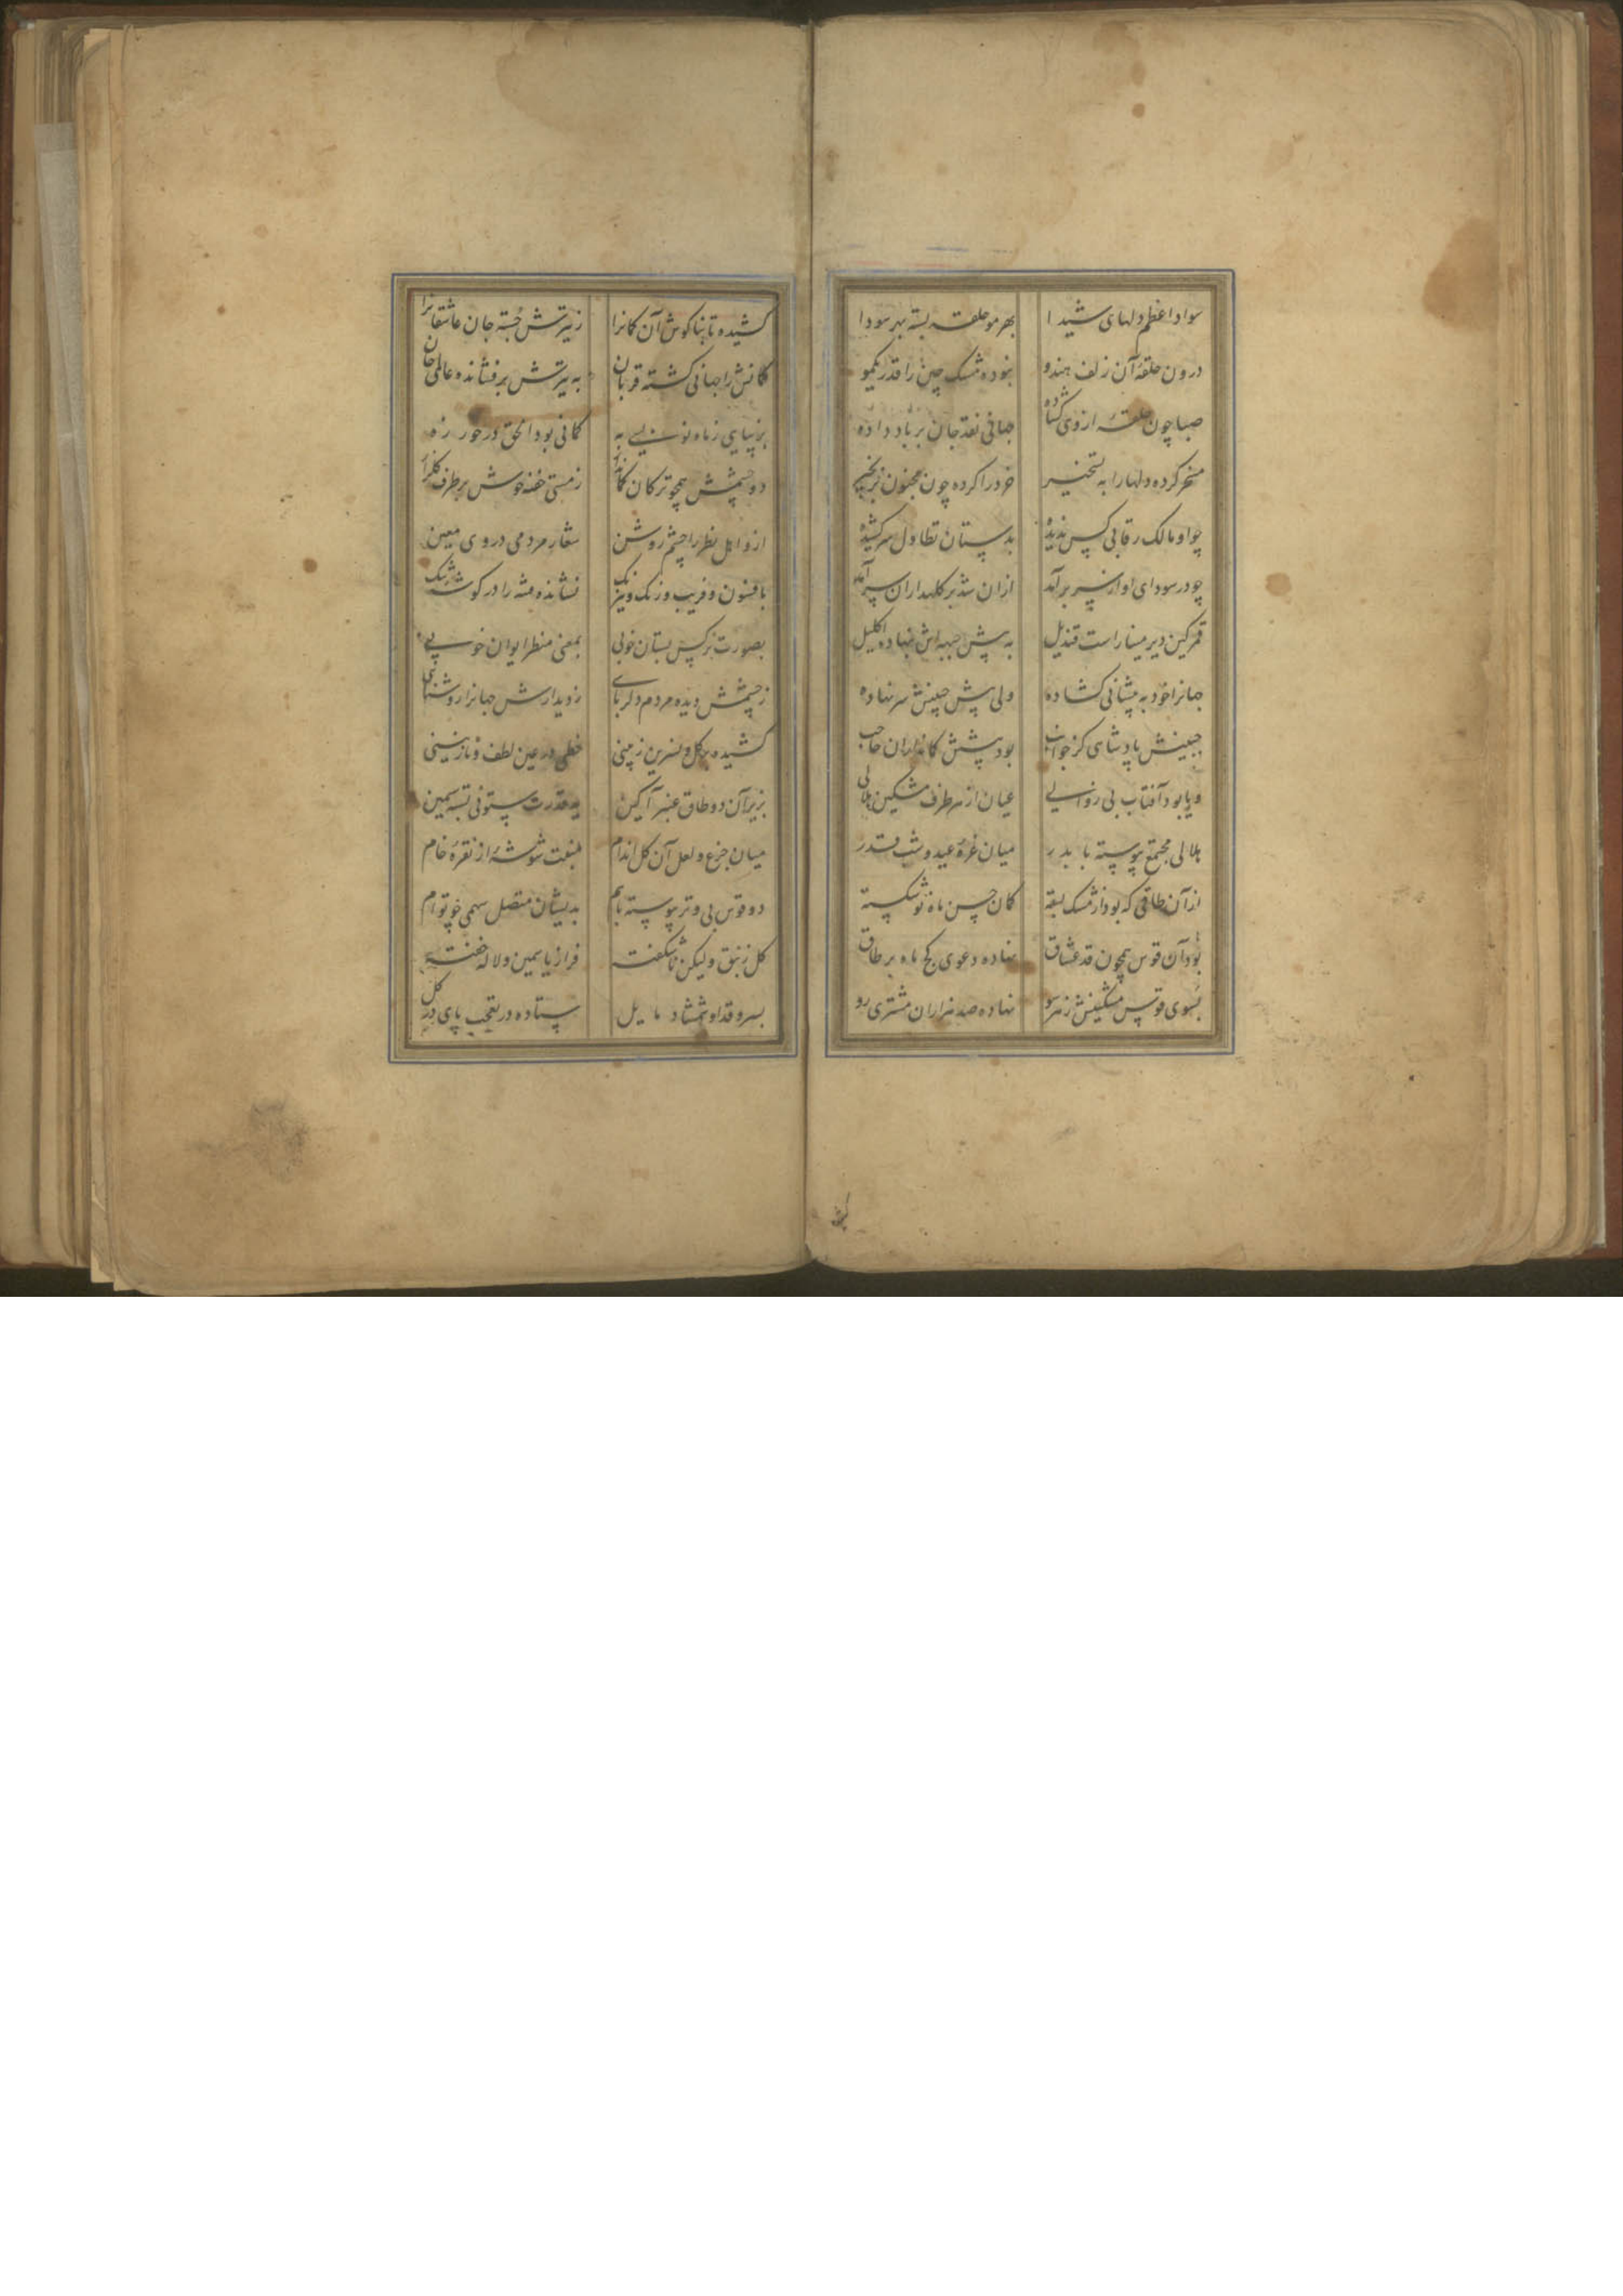 سواد اعظم دلهای شیدا بهر مو حلقه بسته بهر سودا
درون حلقهٔ آن زلف هندو نبوده مشک چین را قدر یکمو
صبا چون حلقهٔ از وی گشاده جهانی نقد جان بر باد داده
مسخر کرده دلها را به تسخیر خرد را کرده چون مجنون بزنجیر
چو او مالک رقابی کس ندیده بدستان تطاول سر کشیده
چو در سودای او از سر برآمد از آن شد بر کلهداران سر آمد
قمر کین دیر مینا راست قندیل به پیش جبهه اش بنهاده اکلیل
جهانرا خود به پیشانی گشاده ولی پیش جبینش سر نهاده
جبینش پادشاهی کز جوانب بود پیشش کمانداران حاجب
و یا بود آفتاب بی زوالی عیان از هر طرف مشکین هلالی
هلالی مجتمع پیوسته با بدر میان غرهٔ عید و شب قدر
از آن طاقی که بود از مشک بسته کمان حسن ماه نو شکسته
بود آن قوس همچون قد عشاق نهاده دعوی کج ماه بر طاق
بسوی قوس مشکینش ز هر سو نهاده صد هزاران مشتری رو
کشیده تا بناکوش آن کمانرا ز تیرش خسته جان عاشقانرا
کمانش را جهانی کشته قربان به تیرش برفشانده عالمی جان
بزیبایی ز ماه نو بسی به کمانی بود الحق در خور زه
دو چشمش همچو ترکان کماندار ز مستی خفته خوش بر طرف گلزار
ازو اهل نظر را چشم روشن شعار مردمی در وی معین
بافسون و فریب و رنک و نیرنک نشانده فتنه را در گوشهٔ تنک
بصورت نرکس بستان خوبی بمعنی منظر ایوان خوبی
ز چشمش دیده مردم دلربای ز دیدارش جهانرا روشنایی
کشیده بر کل و نسرین ز بینی خطی در عین لطف و نازنینی
بزیر آن دو طاق عنبر آکین ید قدرت ستونی بسته سیمین
میان جزع و لعل آن کل اندام شوشهٔ از نقرهٔ خام
دو قوس بی وتر پیوسته باهم بدیشان متصل سهمی چو توام
کل زنبق ولیکن ناشکفته فراز یاسمین و لاله خفته
بسرو قد او شمشاد مایل ستاده در تعجب پای در کل